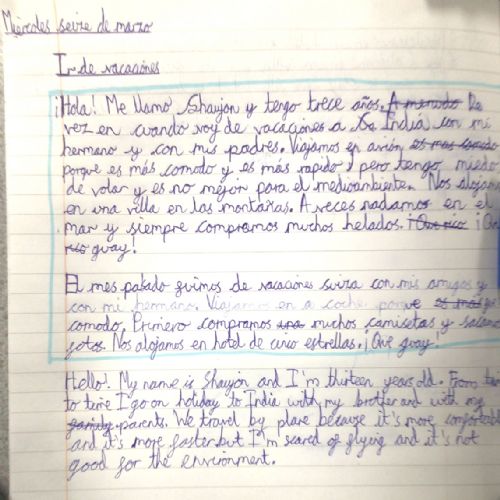 Miércoles seize de marzo
Ir de vacaciones
¡Hola! Me llamo Shayon y tengo trece años. A menudo De
vez en cuando voy de vacaciones a la India con mi
hermano y con mis padres. Viajamos en avión es mas
porque es más comodo y es más rapido, pero tengo miedo
de volar y es no mejor para el medioambiente. Nos alojan
en una villa en las montañas. A veces nadamos en el
mar y siempre compramos muchos helados. ¡Que rico ¡Que
guay!
El mes pasado fuimos de vacaciones suiza con mis amigos y
con mi hermano. Viajamos en a coche porque es mas
comodo. Primero compramos una muchos camisetas y
fotos. Nos alojamos en hotel de cinco estrellas. ¡Que guay!
Hello! My name is Shayon and I'm thirteen years old. From
to time I go on holiday to India with my brother and with my
family parents. We travel by plane because it's more comfortable
and it's more faster but I'm scared of flying and it's not
good for the environment.